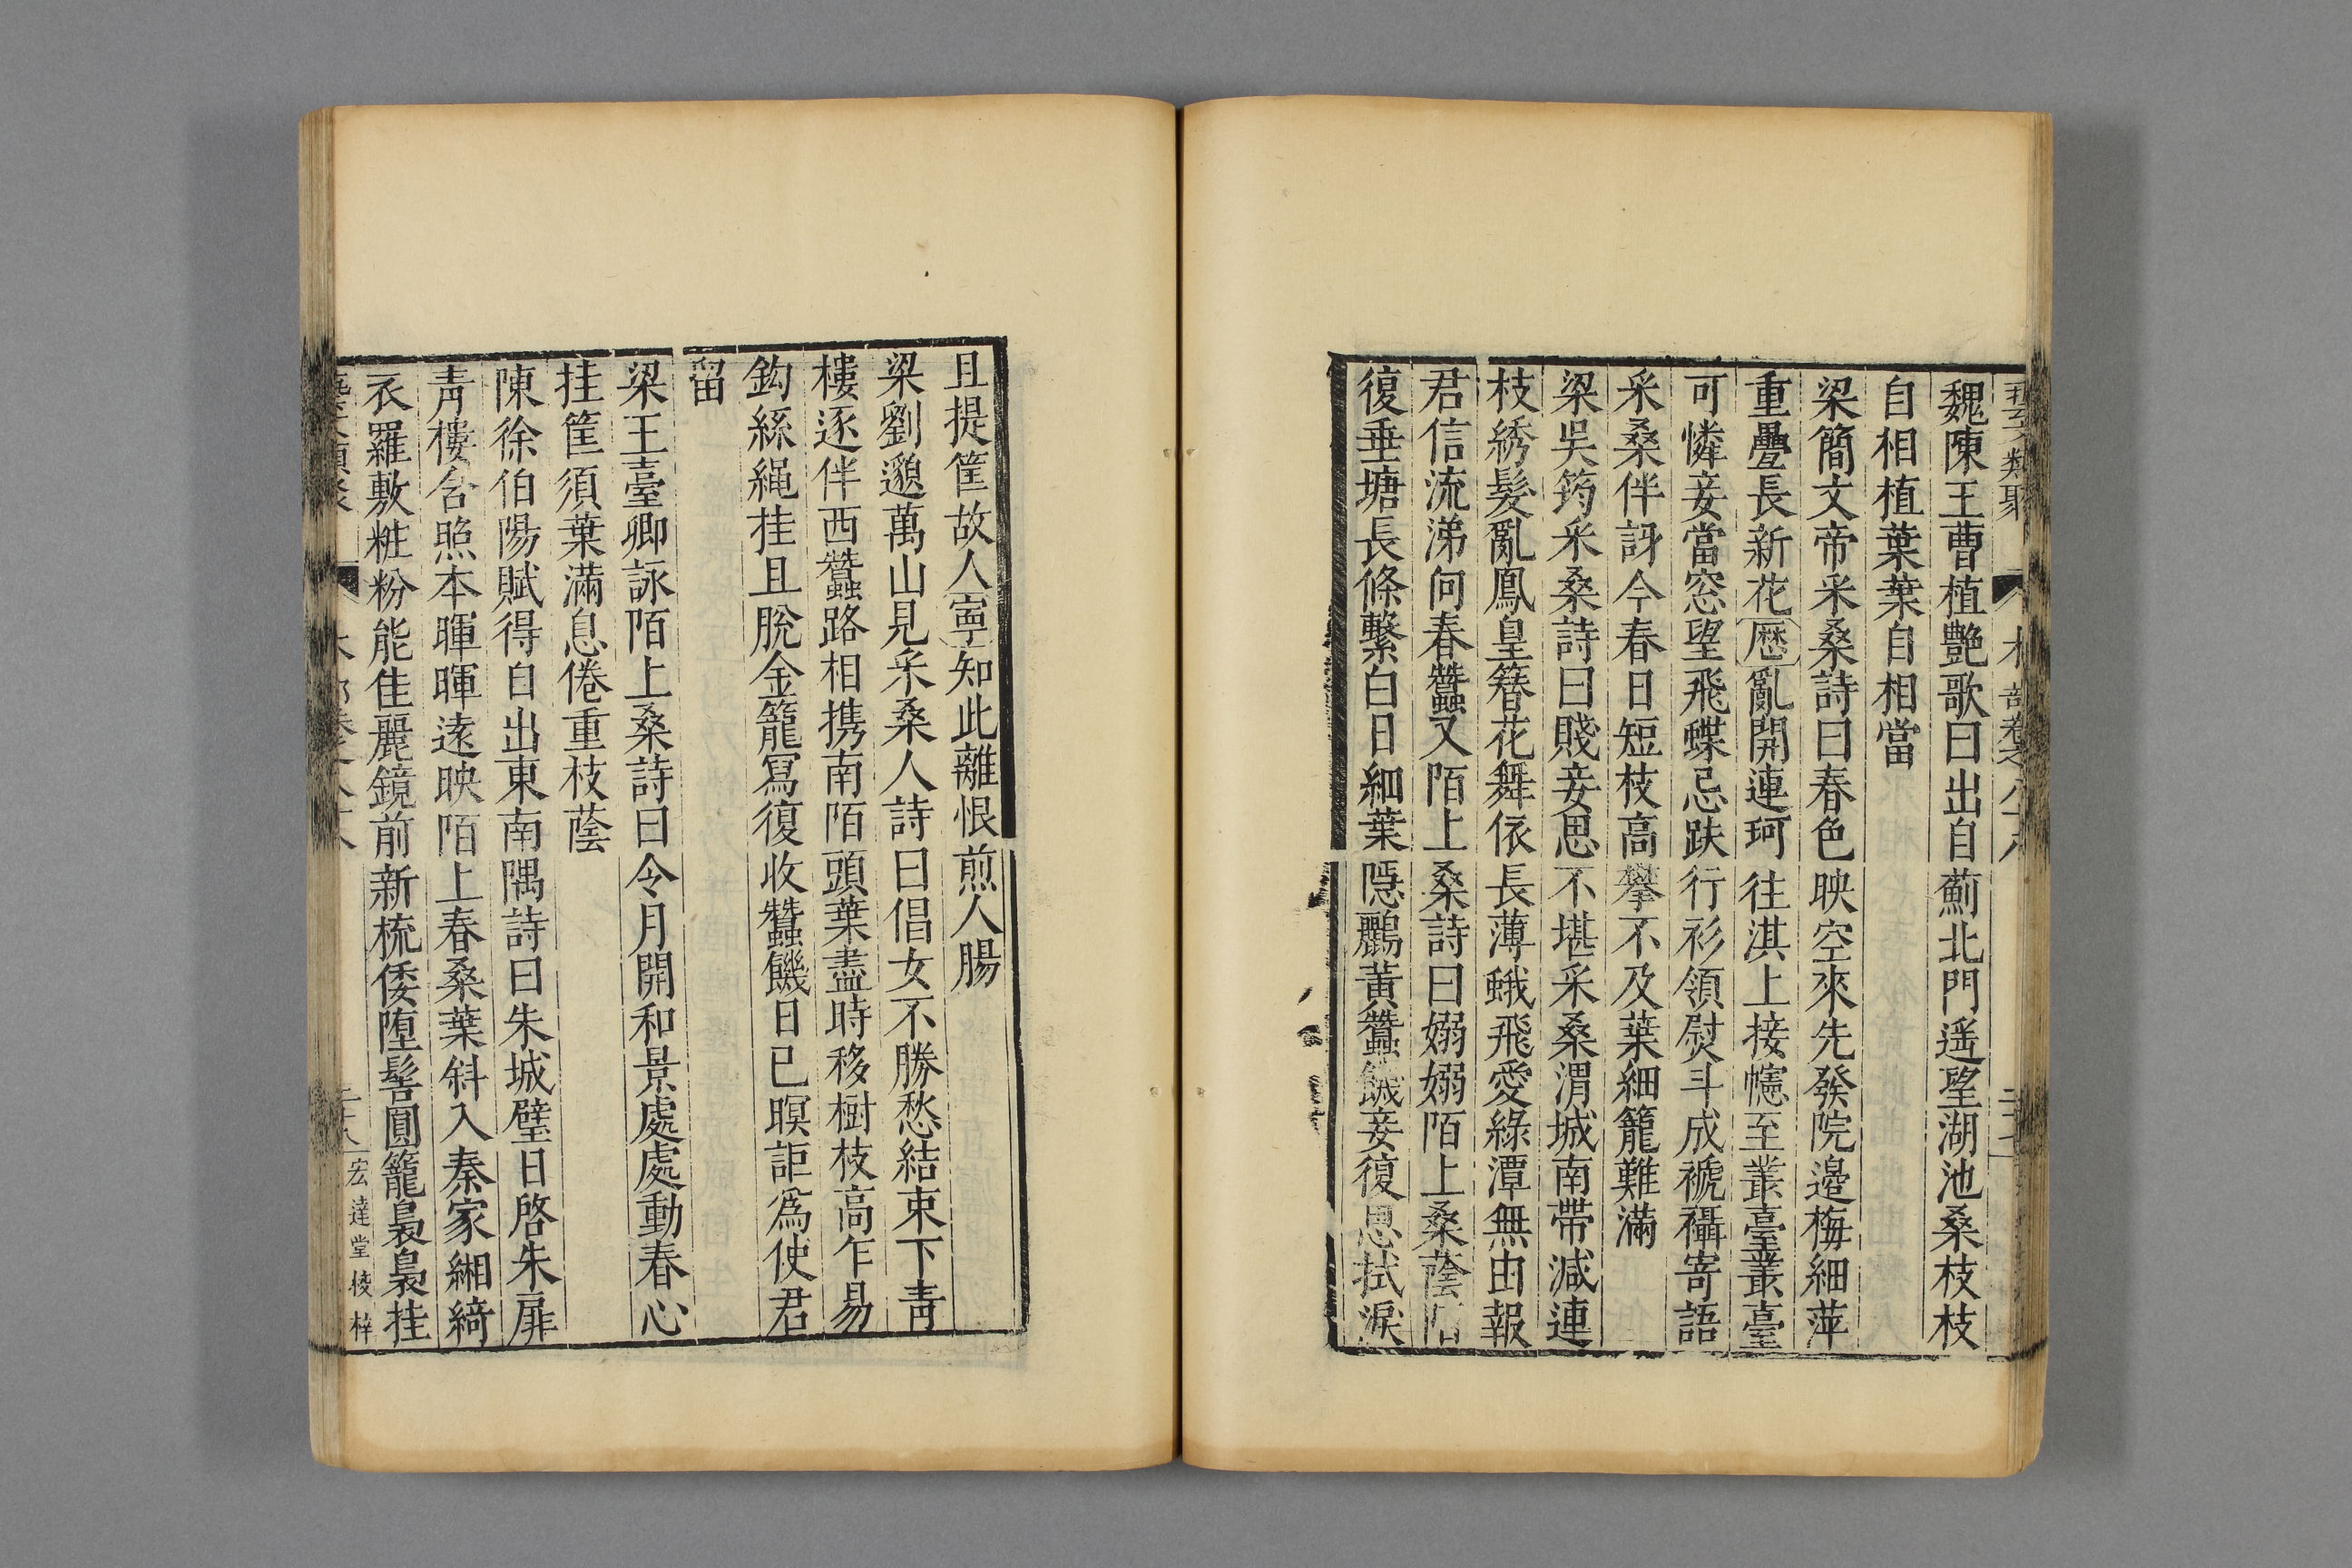 魏陳王曹植艷歌曰出自薊北門遥望湖池桑枝枝
自相植葉葉自相當
梁簡文帝采桑詩曰春色映空來先發院邊梅細萍
重疊長新花歷亂開連珂往淇上接幰至叢臺叢臺
可憐妾當窓望飛蝶忌趺行衫領熨斗成褫襵寄語
采桑伴訝今春日短枝高攀不及葉細籠難滿
梁吳筠采桑詩曰賤妾思不堪采桑渭城南帶减連
枝綉髮亂鳳皇簪花舞依長薄蛾飛愛綠潭無由報
君信流涕向春蠶又陌上桑詩曰嫋嫋陌上桑蔭陌
復垂塘長條繫白日細葉隱鸝黃蠶饑妾復思拭淚
且提筐故人寧知此離恨煎人腸
梁劉邈萬山見采桑人詩曰倡女不勝愁結束下青
樓逐伴西蠶路相携南陌頭葉盡時移樹枝高乍易
鈎絲繩挂且脫金籠寫復收蠶饑日已暝詎爲使君
留
梁王臺卿詠陌上桑詩曰令月開和景處處動春心
挂筐須葉滿息倦重枝蔭
陳徐伯陽賦得日出東南隅詩曰朱城璧日啓朱扉
青樓含照本暉暉遠映陌上春桑葉斜入秦家緗綺
衣羅敷粧粉能佳麗鏡前新梳倭墮髻圓籠裊裊挂
宏達堂校梓